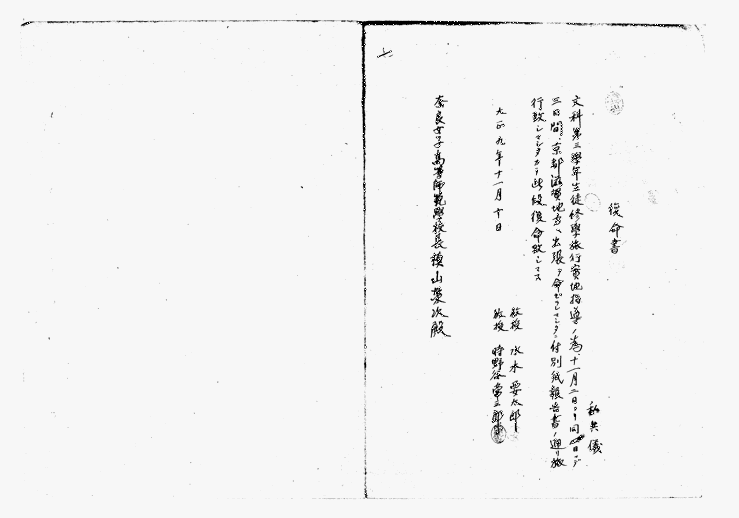 復命書
私共儀
文科第三學年生徒修學旅行實地指導ノ為十一月二日ヨリ同 日マデ
三日間、京都滋賀地方ヘ出張ヲ命ゼラレマシタニ付別紙報告書ノ通リ旅
行致シマシタカラ此段復命致シマス
大正九年十一月十日
教授 水木要太郎
教授 時野谷常三郎
奈良女子高等師範學校長槇山榮次殿